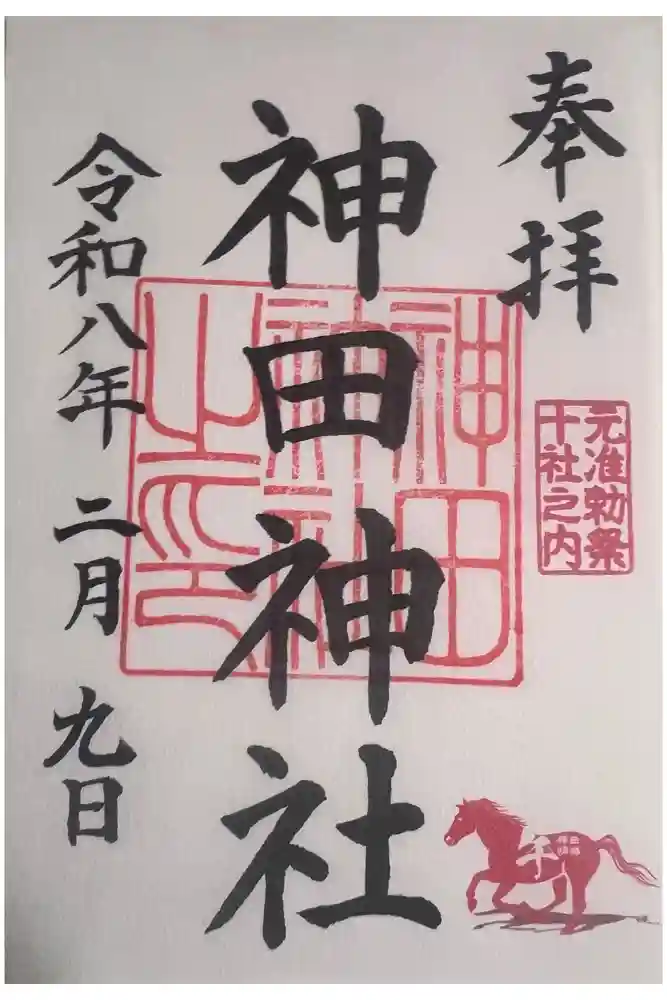 奉拝
元准勅祭
十社之内
神田神社
神田神社之印
令和八年 二月 九日